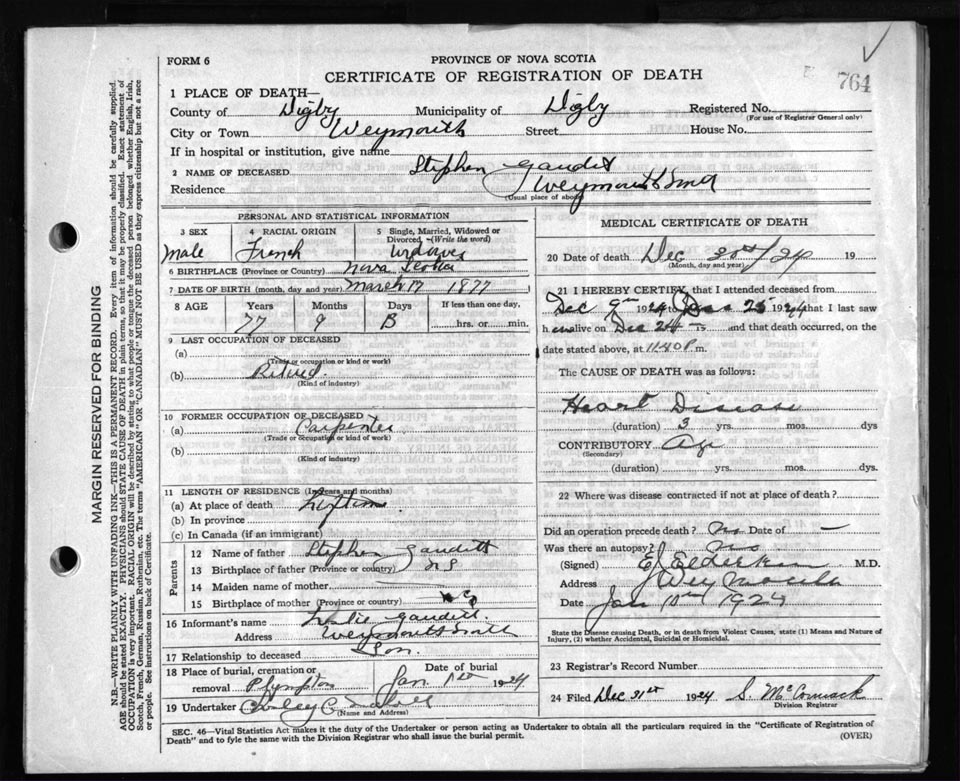 764
FORM 6
PROVINCE OF NOVA SCOTIA
CERTIFICATE OF REGISTRATION OF DEATH
MARGIN RESERVED FOR BINDING
N.B.—WRITE PLAINLY WITH UNFADING INK—THIS IS A PERMANENT RECORD. Every item of information should be carefully supplied.
AGE should be stated EXACTLY. PHYSICIANS should STATE CAUSE OF DEATH in plain terms, so that it may be properly classified. Exact statement of
OCCUPATION is very important. RACIAL ORIGIN will be described by stating to what people or tongue the deceased person belonged whether English, Irish,
Scotch, French, German, Russian, Ruthenian, etc. The terms "AMERICAN" or "CANADIAN" MUST NOT BE USED as they express citizenship but not a race
or people. See instructions on back of Certificate.
1 PLACE OF DEATH—
County of Digby Municipality of Digby Registered No.
(For use of Registrar General only)
City or Town Weymouth Street House No.
If in hospital or institution, give name
2 NAME OF DECEASED Stephen Gaudett
Residence Weymouth
(Usual place of abode)
PERSONAL AND STATISTICAL INFORMATION
3 SEX 4 RACIAL ORIGIN 5 Single, Married, Widowed or
Divorced—(Write the word)
Male French Widower
6 BIRTHPLACE (Province or Country) Nova Scotia
7 DATE OF BIRTH (month, day and year) March 17 1877
8 AGE Years Months Days If less than one day,
77 9 hrs. or min.
9 LAST OCCUPATION OF DECEASED
(a)
(Trade or occupation or kind of work)
(b) Retired
(Kind of industry)
10 FORMER OCCUPATION OF DECEASED
(a) Carpenter
(Trade or occupation or kind of work)
(b)
(Kind of industry)
11 LENGTH OF RESIDENCE (In years and months)
(a) At place of death Lifetime
(b) In province
(c) In Canada (if an immigrant)
Parents
12 Name of father Stephen Gaudett
13 Birthplace of father (Province or country) NS
14 Maiden name of mother
15 Birthplace of mother (Province or country)
16 Informant's name Gaudett
Address Weymouth
17 Relationship to deceased Son
18 Place of burial, cremation or Date of burial
removal Plympton Jan 1st 1924
19 Undertaker
(Name and Address)
MEDICAL CERTIFICATE OF DEATH
20 Date of death Dec /24 19
(Month, day and year)
21 I HEREBY CERTIFY, that I attended deceased from
Dec 9th 1924 to Dec 25 1924 that I last saw
h alive on Dec 24 and that death occurred, on the
date stated above, at 11.40 P. m.
The CAUSE OF DEATH was as follows:
Heart Disease
(duration) 3 yrs. mos. dys
CONTRIBUTORY Age
(Secondary)
(duration) yrs. mos. dys.
22 Where was disease contracted if not at place of death?
Did an operation precede death? No Date of —
Was there an autopsy? No
(Signed) E Elderkin M.D.
Address Weymouth
Date Jan 1924
State the Disease causing Death, or in death from Violent Causes, state (1) Means and Nature of
Injury, (2) whether Accidental, Suicidal or Homicidal.
23 Registrar's Record Number
24 Filed Dec 31st 1924 S. McCormack
Division Registrar
SEC. 46—Vital Statistics Act makes it the duty of the Undertaker or person acting as Undertaker to obtain all the particulars required in the "Certificate of Registration of
Death" and to fyle the same with the Division Registrar who shall issue the burial permit. (OVER)